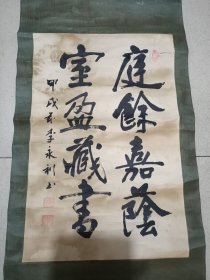 庭餘嘉蔭
室盈藏書
甲戌年李永利书